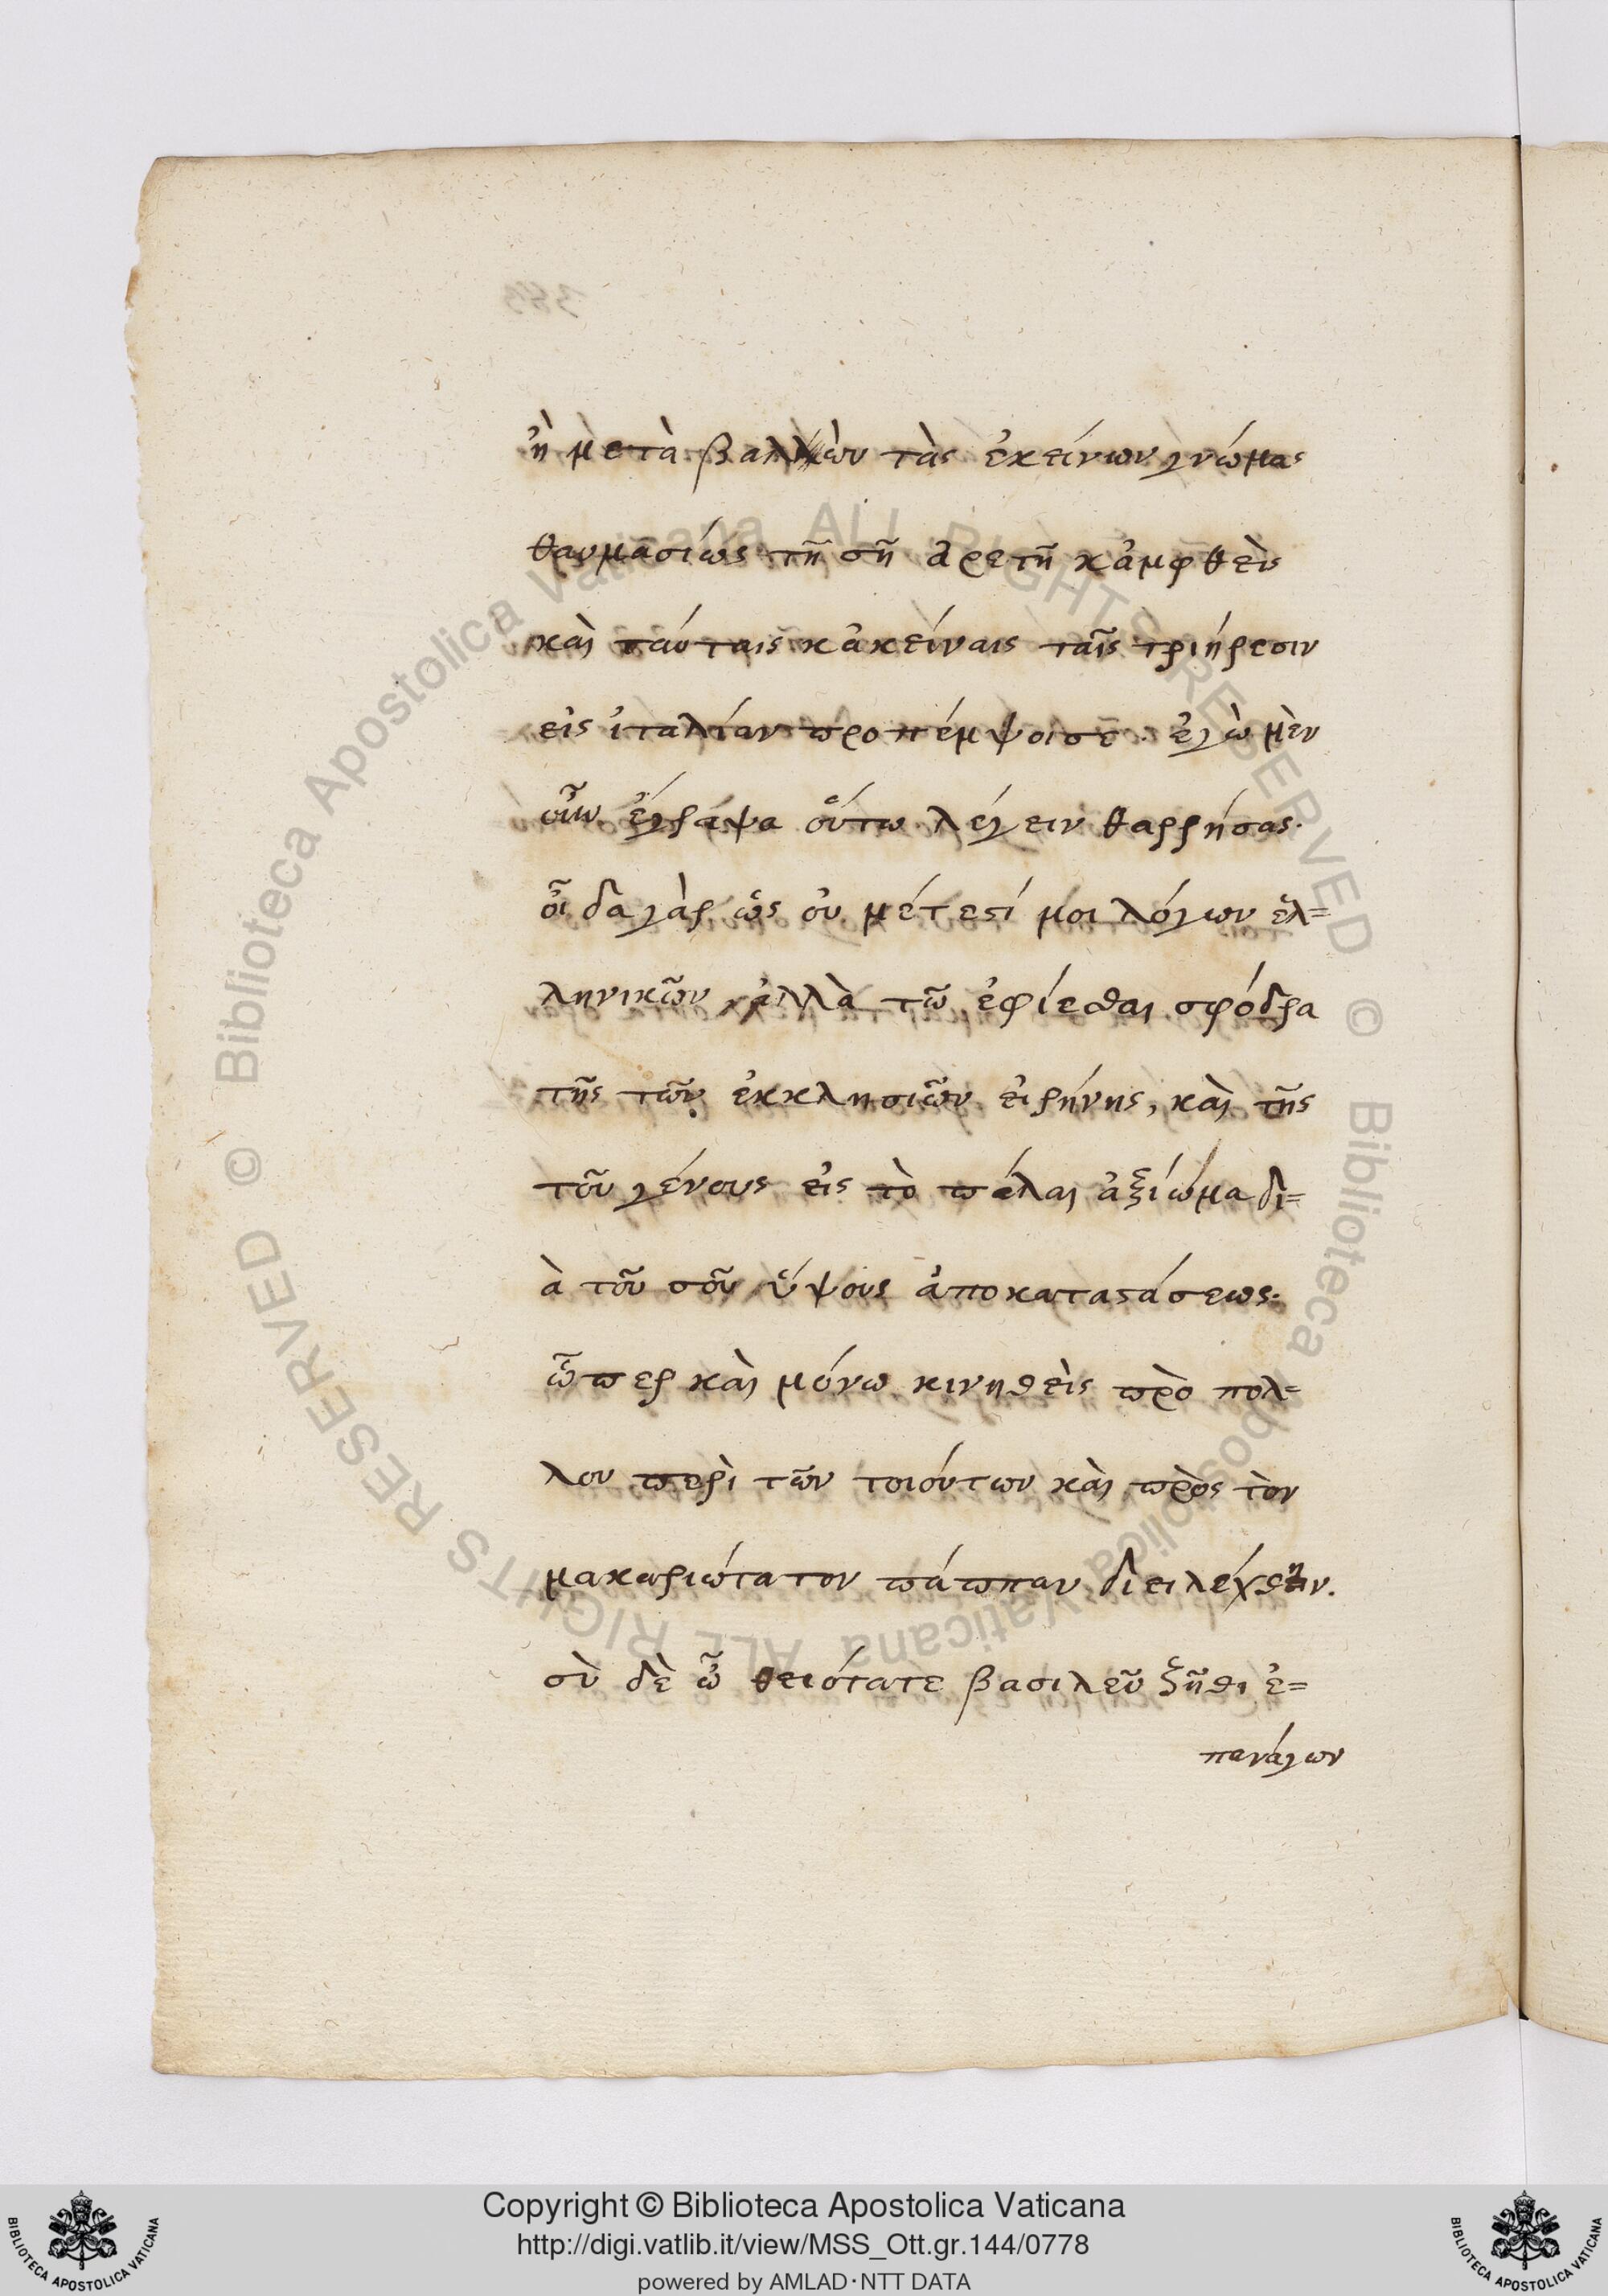 383
ἢ μετὰ βαλὼν τὰς ἐκείνων γνώμας
θαυμασίως τῆ σῆ ἀρετῆ κἀμφθεὶς
καὶ ταύταις κἀκείναις ταῖς τριήρεσιν
εἰς ἰταλίαν προπέμψοι σε· ἐγὼ μὲν
οὖν ἔγραψα οὕτω λέγειν θαρρήσας·
οἶδα γὰρ ὡς οὐ μέτεστί μοι λόγων ἑλ=
ληνικῶν ἀλλὰ τῶ ἐφίεσθαι σφόδρα
τῆς τῶν ἐκκλησιῶν εἰρήνης, καὶ τῆς
τοῦ γένους εἰς τὸ πάλαι ἀξίωμα δι=
ὰ τοῦ σοῦ ὕψους ἀποκαταστάσεως·
ὧπερ καὶ μόνω κινηθεὶς πρὸ πολ=
λου περὶ τῶν τοιούτων καὶ πρὸς τὸν
μακαριώτατον πάππαν διειλέχθην.
σὺ δὲ ὦ θειότατε βασιλεῦ ζῆθι ἐ=
πανάγων
Copyright © Biblioteca Apostolica Vaticana
http://digi.vatlib.it/view/MSS_Ott.gr.144/0778
powered by AMLAD·NTT DATA
BIBLIOTECA APOSTOLICA VATICANA
BIBLIOTECA APOSTOLICA VATICANA
© Biblioteca Apostolica Vaticana ALL RIGHTS RESERVED © Biblioteca Apostolica Vaticana ALL RIGHTS RESERVED